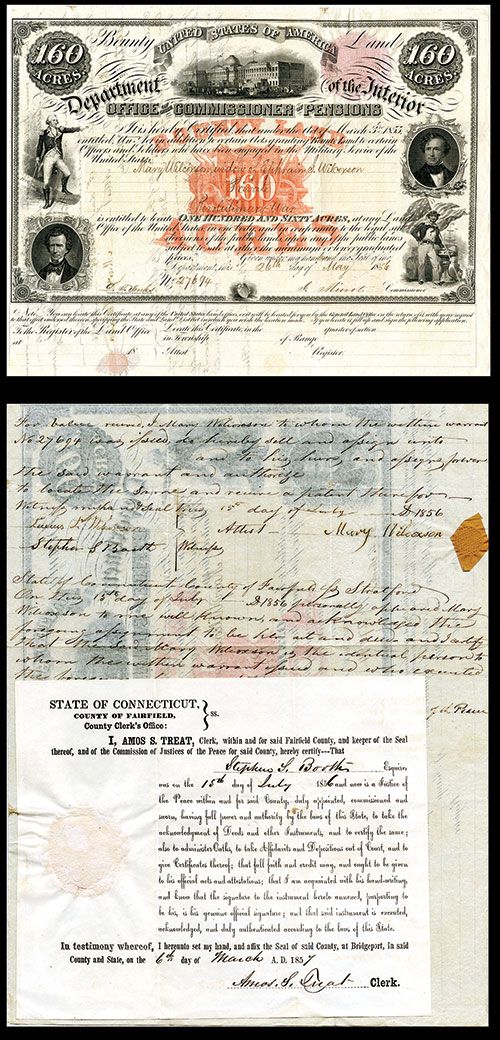 160 ACRES.
Bounty
UNITED STATES OF AMERICA
Land
160 ACRES.
Department of the Interior
OFFICE OF THE COMMISSIONER OF PENSIONS
It is hereby Certified that under the Act of March 3rd 1855,
entitled, "An Act in addition to certain Acts granting Bounty Land to certain
Officers and Soldiers who have been engaged in the Military Service of the
United States,"
Mary Wilcoxson widow of Ephraim J. Wilcoxson
Revolutionary War
160
ACRES
is entitled to locate ONE HUNDRED AND SIXTY ACRES, at any Land
Office of the United States, in one body, and in conformity to the legal sub-
divisions of the public lands, upon any of the public lands
subject to sale at either the minimum or lower graduated
prices. Given under my hand and the Seal of the
Department, this 26th day of May 1856
No. 27694
J. Minot Commissioner
To the Register of the Land Office
at
Locate this Certificate, in the quarter of section
in Township of Range
18 Attest Register.
For value received, I Mary Wilcoxson to whom the within warrant
No 27694 was issued, do hereby sell and assign unto
and to his heirs, and assigns forever
the said warrant and authorize
to locate the same and receive a patent therefor
Witness my hand and Seal this 15th day of July AD 1856
Attest Mary Wilcoxson
Stephen S Booth Witness
State of Connecticut County of Fairfield ss Stratford
On this 15th day of July AD 1856 personally appeared Mary
Wilcoxson to me well known, and acknowledged the
foregoing assignment to be her act and deed and I certify
that the said Mary Wilcoxson is the identical person to
whom the within warrant issued and who executed
STATE OF CONNECTICUT,
COUNTY OF FAIRFIELD, ss.
County Clerk's Office:
I, AMOS S. TREAT, Clerk, within and for said Fairfield County, and keeper of the Seal
thereof, and of the Commission of Justices of the Peace for said County, hereby certify---That
Stephen S. Booth Esquire,
was on the 15th day of July 1856 and now is a Justice of
the Peace within and for said County, duly appointed, commissioned and
sworn, having full power and authority by the laws of this State, to take the
acknowledgment of Deeds and other Instruments, and to certify the same;
also to administer Oaths, to take Affidavits and Depositions out of Court, and to
give Certificates thereof; that full faith and credit may, and ought to be given
to his official acts and attestations; that I am acquainted with his hand-writing,
and know that the signature to the instrument hereto annexed, purporting to
be his, is his genuine official signature; and that said instrument is executed,
acknowledged, and duly authenticated according to the laws of this State.
In testimony whereof, I hereunto set my hand, and affix the Seal of said County, at Bridgeport, in said
County and State, on the 6th day of March A. D. 1857
Amos S. Treat Clerk.